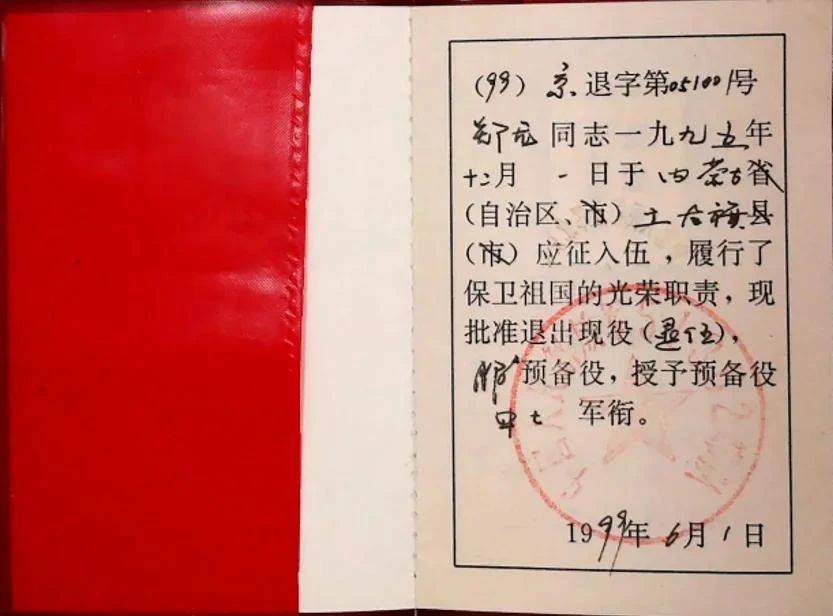 (99)京退字第051001号
郑龙同志一九九五年
十二月 一日于内蒙古省
(自治区、市)土右旗县
(市)应征入伍，履行了
保卫祖国的光荣职责，现
批准退出现役(退伍)，
预备役，授予预备役
中士 军衔。
1999年6月1日